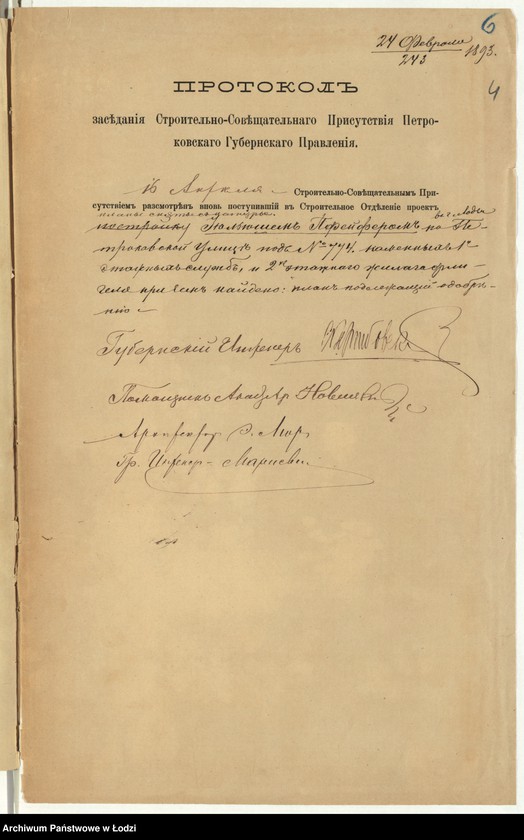 6
24 Февраля 1893.
243
4
ПРОТОКОЛЪ
засѣданія Строительно-Совѣщательнаго Присутствія Петро-
ковскаго Губернскаго Правленія.
Апрѣля Строительно-Совѣщательнымъ При-
сутствіемъ разсмотрѣнъ вновь поступившій въ Строительное Отдѣленіе проектъ
въ г. Лодзи
постройку по Пе-
троковской улицѣ подъ № 774. каменныхъ 1º
этажныхъ службъ, и 2хъ этажнаго жилаго фли-
геля при чемъ найдено: планъ подлежащій одобрѣ-
нію
Губернскій Инженеръ
Архитекторъ
Гр. Инженеръ
Archiwum Państwowe w Łodzi